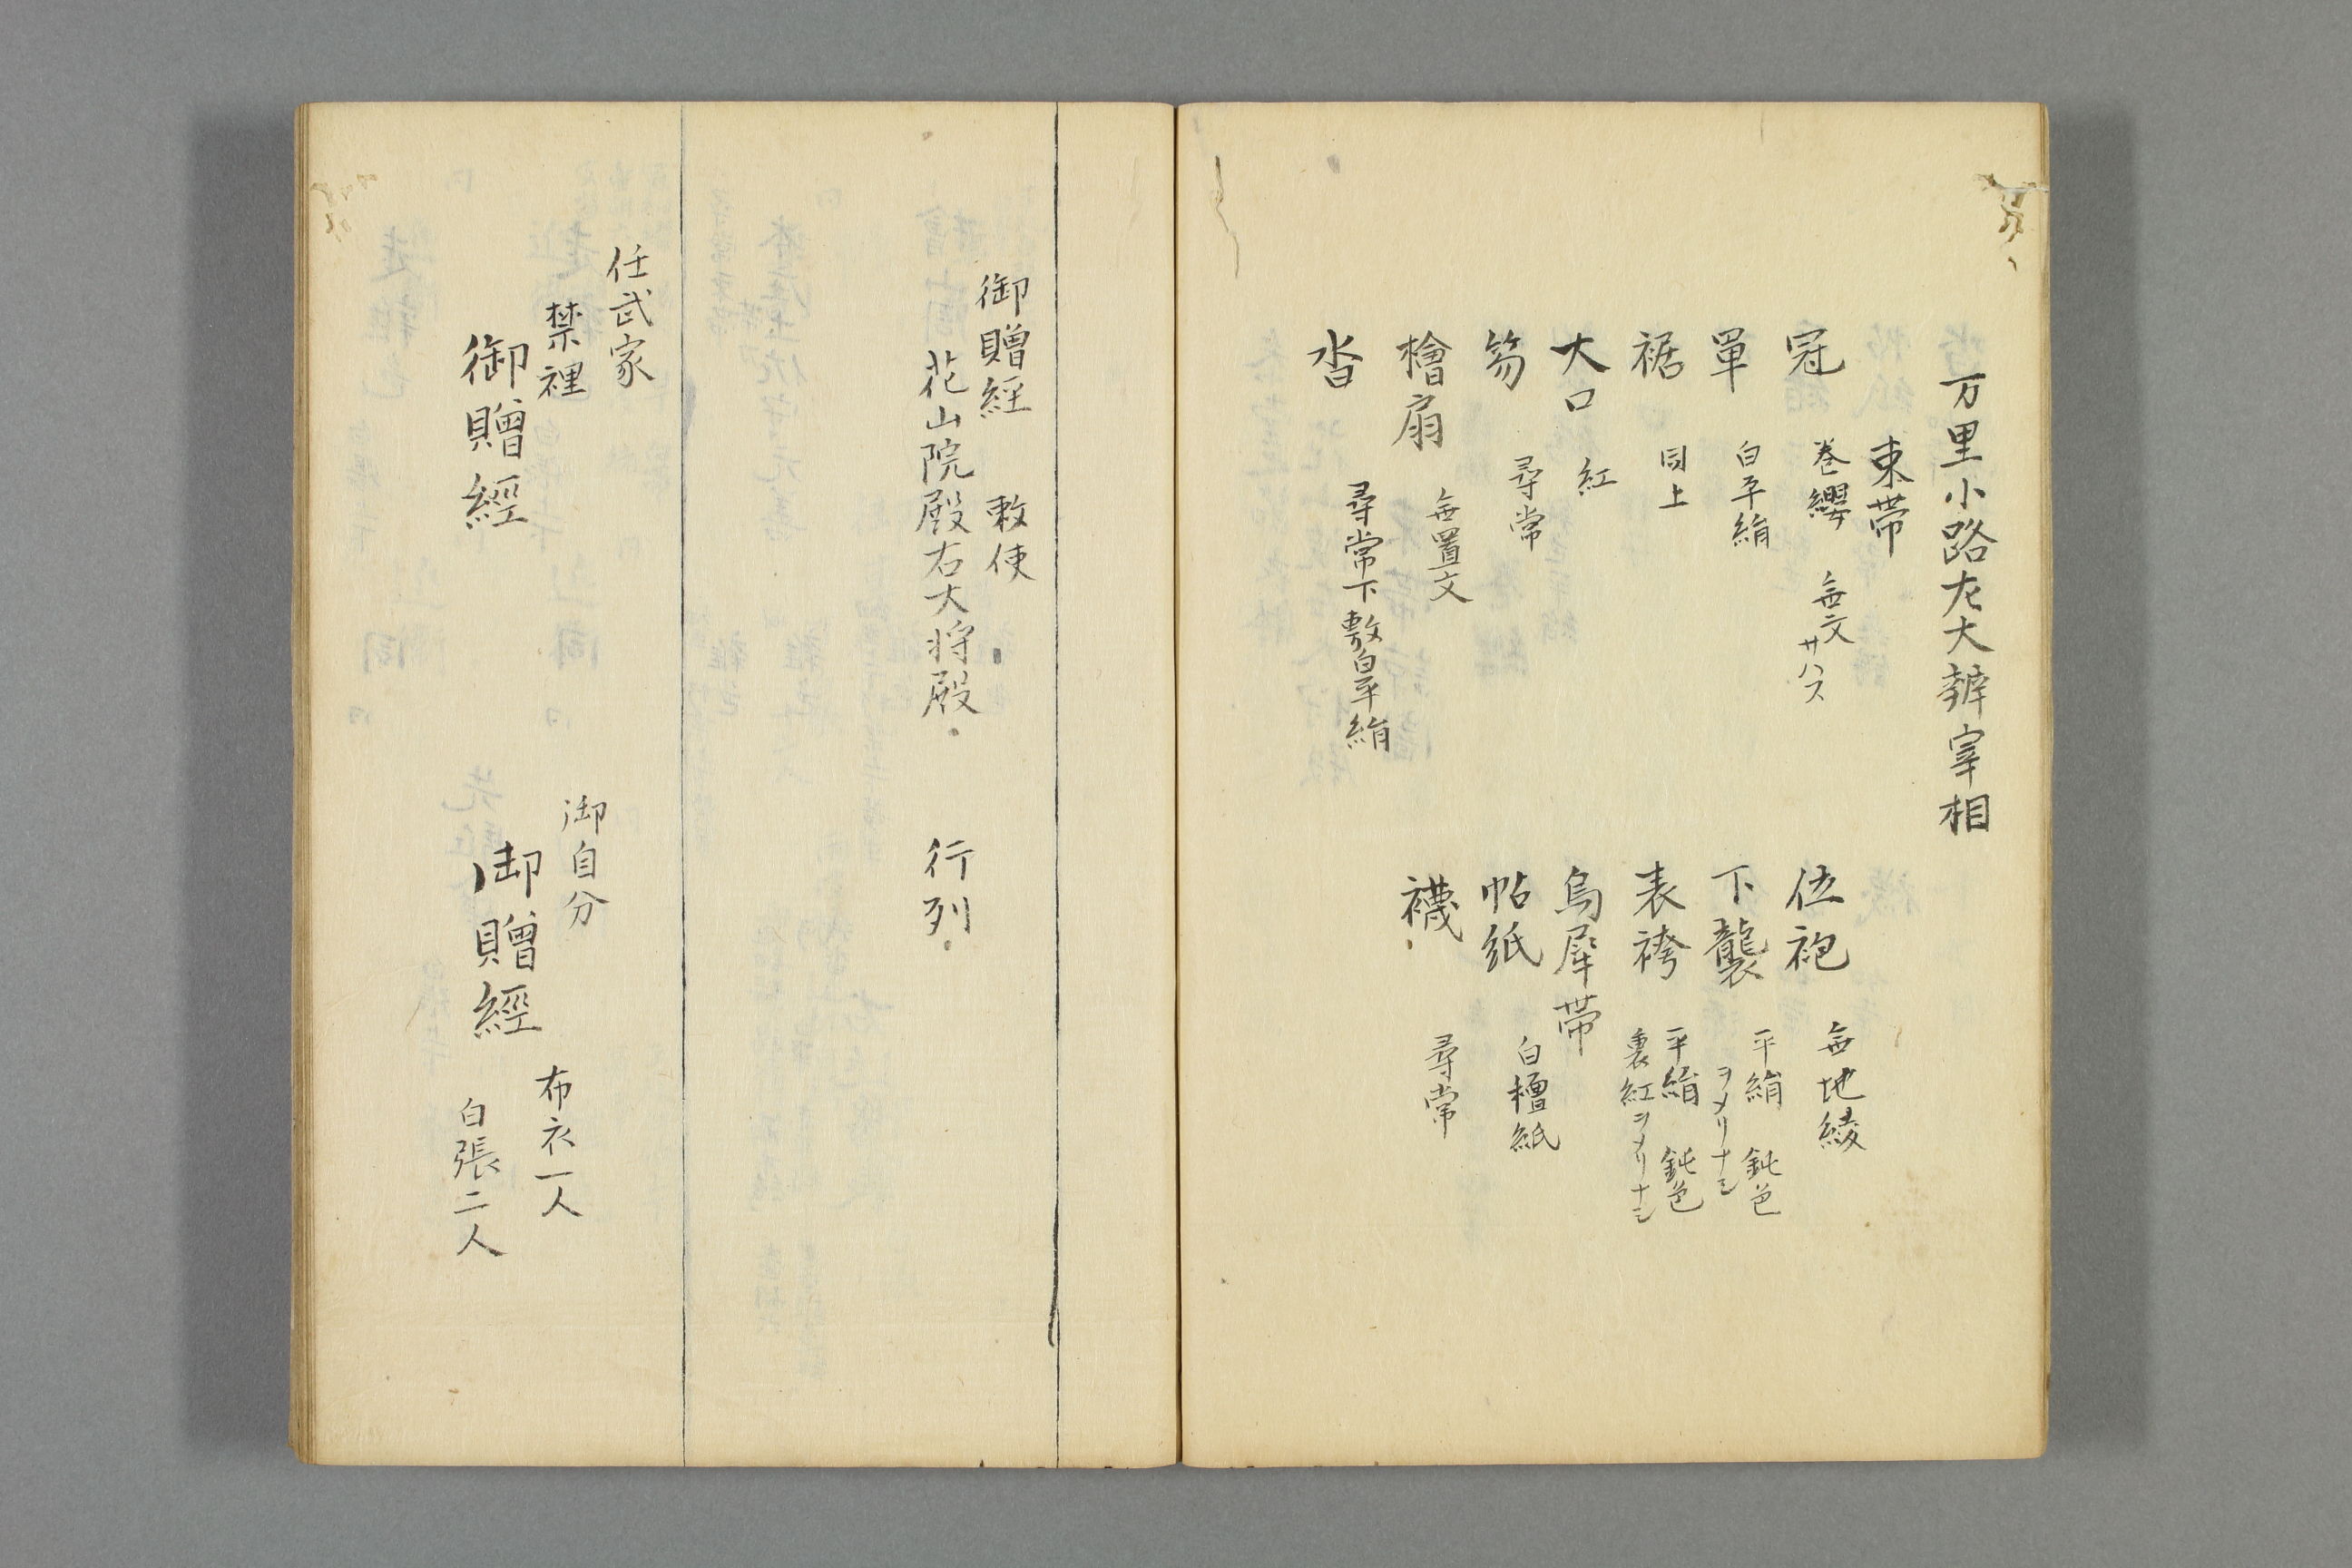 万里小路左大辨宰相
束帯
冠 巻纓 無文 サハス
位袍 無地綾
單 白平絹
下襲 平絹 鈍色
ヲメリナシ
裾 同上
表袴 平絹 鈍色
裏紅ヲメリナシ
大口 紅
烏犀帯
笏 尋常
帖紙 白檀紙
檜扇 無置文
襪 尋常
沓 尋常下敷白平絹
御贈経 敕使
花山院殿右大将殿 行列
任武家
禁裡
御贈經
御自分
御贈經
布衣一人
白張二人